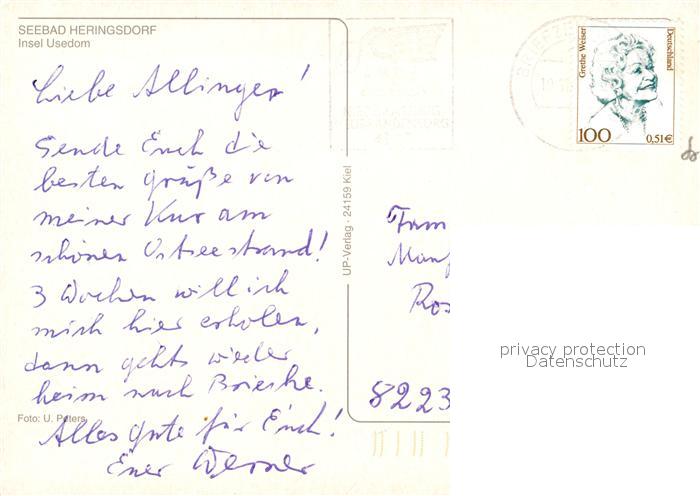 SEEBAD HERINGSDORF
Insel Usedom
Liebe Allinger!
Sende Euch die
besten Grüße von
meiner Kur am
schönen Ostseestrand!
3 Wochen will ich
mich hier erholen,
dann gehts wieder
heim nach Brieske.
Alles gute für Euch!
Euer Werner
Foto: U. Peters
UP-Verlag · 24159 Kiel
BRIEFZE
Grethe Weiser
Deutschland
100
0,51€
Fam
Manf
Ros
8223
privacy protection
Datenschutz